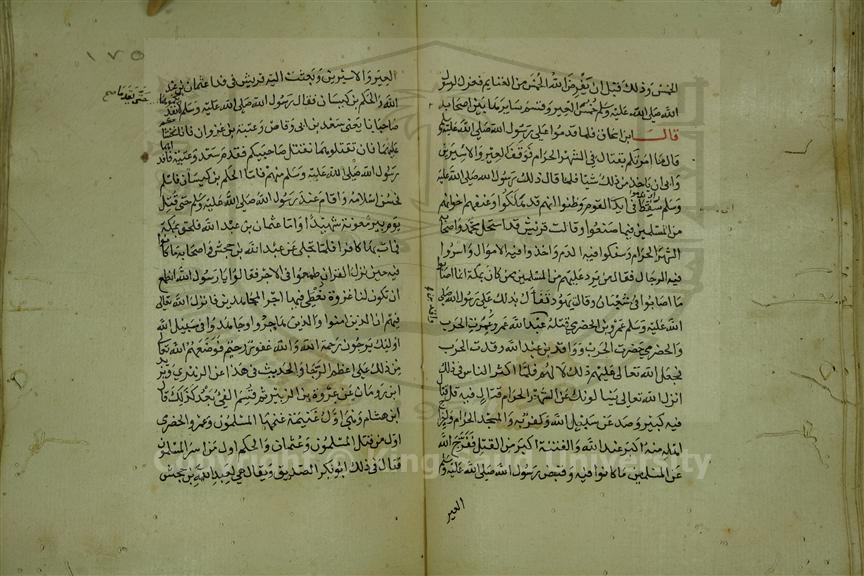 الخمس وذلك قبل ان يفرض الله الخمس من الغنايم فعزل لرسول
الله صلى الله عليه وسلم خمس العير وقسم سايرها بين اصحابه
قال ابن اسحاق فلما قدموا على رسول الله صلى الله عليه وسلم
قال ما امرتكم بقتال في الشهر الحرام فوقف العير والاسيرين
وابى ان ياخذ من ذلك شيئا فلما قال ذلك رسول الله صلى الله عليه
وسلم سقط في ايدي القوم وظنوا انهم قد هلكوا وعنفهم اخوانهم
من المسلمين فيما صنعوا وقالت قريش قد استحل محمد واصحابه
الشهر الحرام وسفكوا فيه الدم واخذوا فيه الاموال واسروا
فيه الرجال فقال من يرد عليهم من المسلمين ممن كان بمكة انما اصابوا
ما اصابوا في شعبان وقال يهود تفأل بذلك على رسول الله صلى
الله عليه وسلم عمرو بن الحضرمي قتله عبد الله عمرو عمرت الحرب
والحضرمي حضرت الحرب وواقد بن عبد الله وقدت الحرب
فجعل الله تعالى عليهم ذلك لا لهم فلما اكثر الناس في ذلك
انزل الله تعالى يسالونك عن الشهر الحرام قتال فيه قل قتال
فيه كبير وصد عن سبيل الله وكفر به والمسجد الحرام واخراج
اهله منه اكبر عند الله والفتنة اكبر من القتل ففرج الله
عن المسلمين ما كانوا فيه وقبض رسول الله صلى الله عليه وسلم
العير
١٧٥
العير والاسيرين وبعثت اليه قريش في فدا عثمان بن عبد
الله والحكم بن كيسان فقال رسول الله صلى الله عليه وسلم
صاحبانا يعني سعد بن ابي وقاص وعتبة بن غزوان فانا نخشاكم
عليهما فان تقتلوهما نقتل صاحبيكم فقدم سعد وعتبة فافداهما
رسول الله صلى الله عليه وسلم منهم فاما الحكم بن كيسان فاسلم
فحسن اسلامه واقام عند رسول الله صلى الله عليه وسلم حتى قتل
يوم بير معونة شهيدا واما عثمان بن عبد الله فلحق بمكة
فمات بها كافرا فلما تجلى عن عبد الله بن جحش واصحابه ما كانوا
فيه حين نزل القران طمعوا في الاجر فقالوا يا رسول الله انطمع
ان تكون لنا غزوة نعطى فيها اجر المجاهدين فانزل الله تعالى
فيهم ان الذين امنوا والذين هاجروا وجاهدوا في سبيل الله
اوليك يرجون رحمة الله والله غفور رحيم فوضعهم الله تعالى
من ذلك على اعظم الرجا والحديث في هذا عن الزهري ويزيد
ابن رومان عن عروة بن الزبير ثم قسم الفي بعد كذلك قال
ابن هشام وهي اول غنيمة غنمها المسلمون وعمرو الحضرمي
اول من قتل المسلمون وعثمان والحكم اول من اسر المسلمون
فقال في ذلك ابو بكر الصديق ويقال هي لعبد الله بن جحش
Copyright © King Saud University